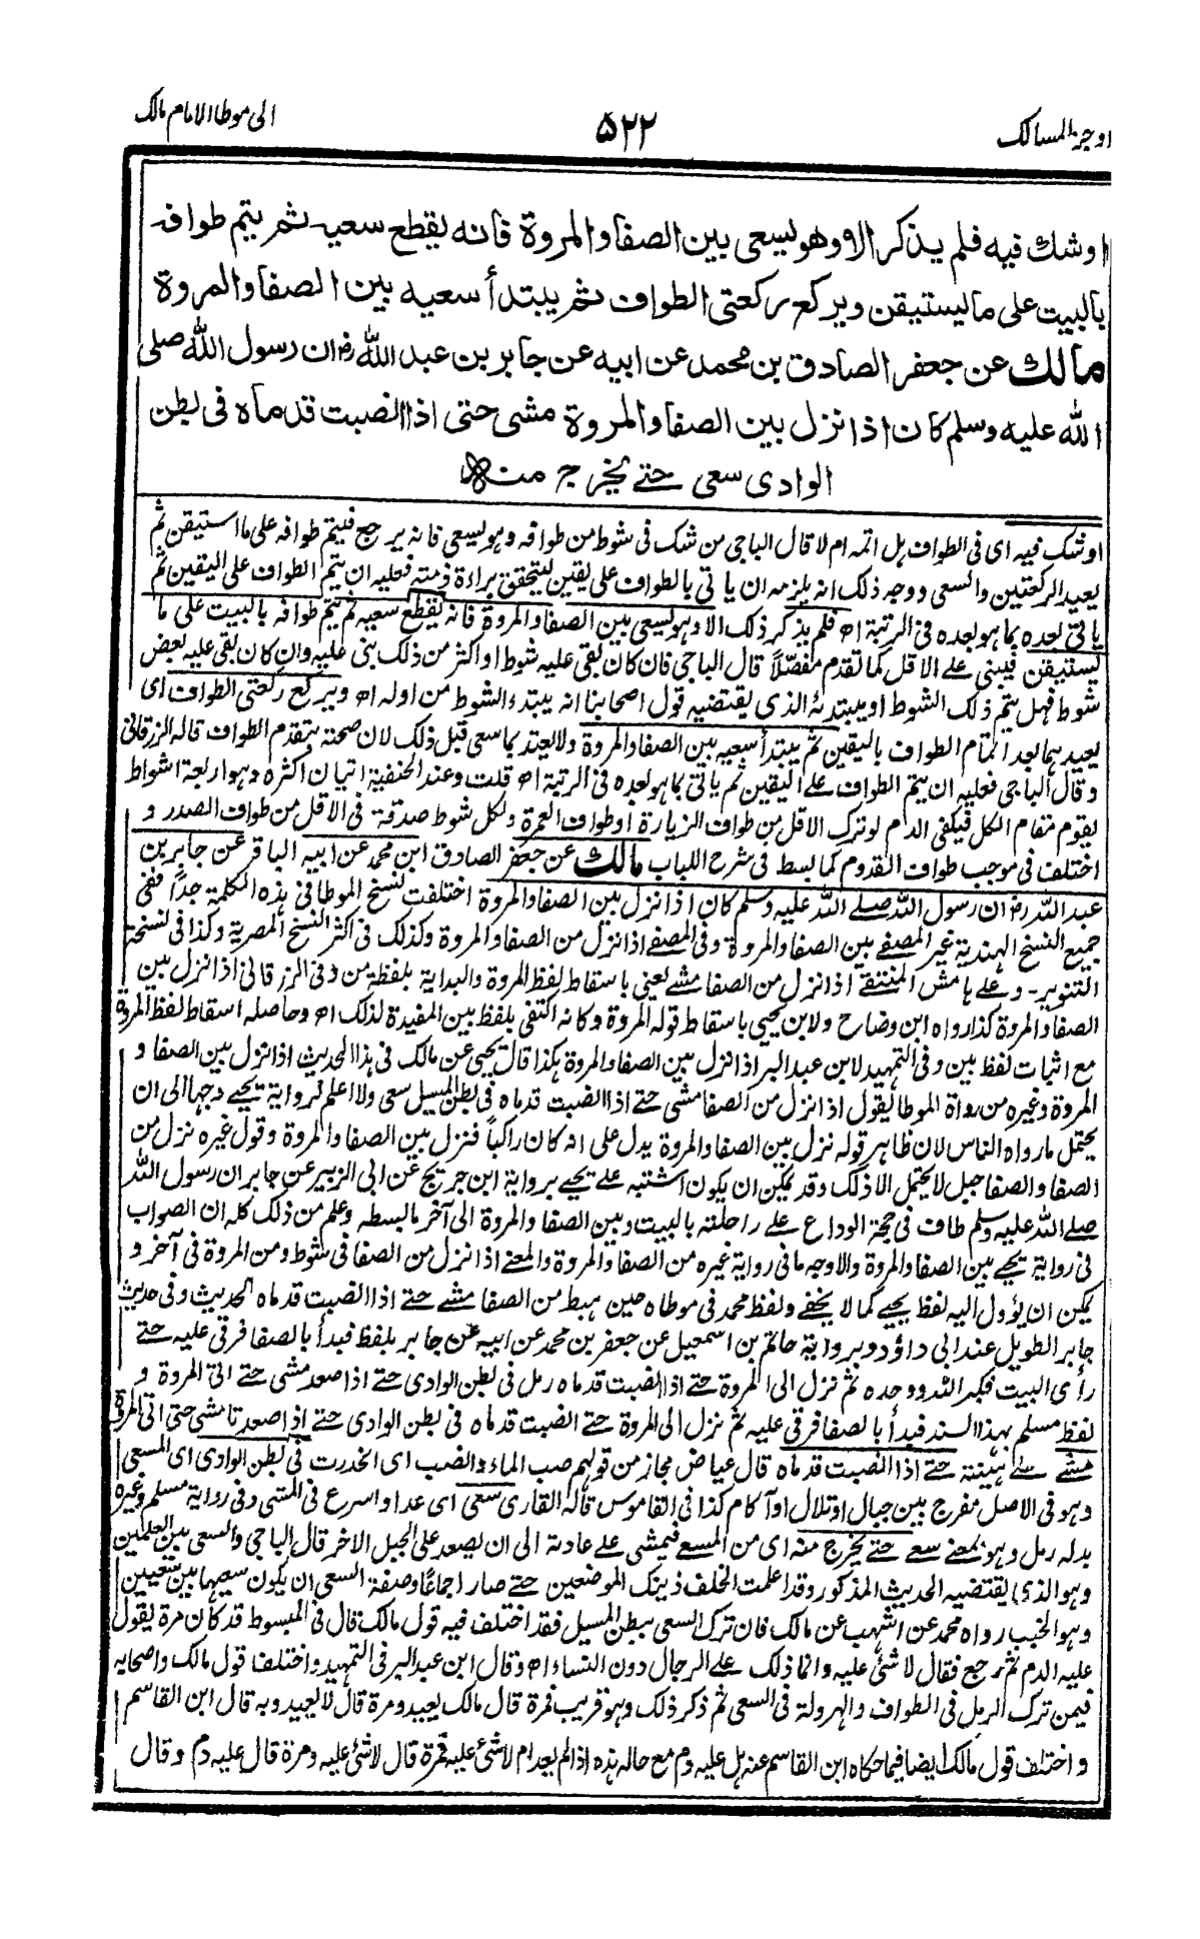 اوجز المسالك
٥٢٢
الى موطا الامام مالك
اوشك فيه فلم يذكر الا وهو يسعى بين الصفا والمروة فانه يقطع سعيه ثم يتم طوافه
بالبيت على ما يستيقن ويركع ركعتى الطواف ثم يبتدأ سعيه بين الصفا والمروة
مالك عن جعفر الصادق بن محمد عن ابيه عن جابر بن عبد الله رض ان رسول الله صلى
الله عليه وسلم كان اذا نزل بين الصفا والمروة مشى حتى اذا انصبت قدماه فى بطن
الوادى سعى حتے يخرج منه
اوشك فيه اى فى الطواف هل اتمه ام لا قال الباجى من شك فى شوط من طوافه وهو يسعى فانه يرجع فيتم طوافه على ما استيقن ثم
يعيد الركعتين والسعى ووجه ذلك انه يلزمه ان ياتى بالطواف على يقين ليتحقق براءة ذمته فعليه ان يتم الطواف على اليقين ثم
ياتى بعده بما هو بعده فى الرتبة اه فلم يذكر ذلك الا وهو يسعى بين الصفا والمروة فانه يقطع سعيه ثم يتم طوافه بالبيت على ما
يستيقن فيبنى على الاقل كما تقدم مفصلاً قال الباجى فان كان بقى عليه شوط او اكثر من ذلك بنى عليه وان كان بقى عليه بعض
شوط فهل يتم ذلك الشوط او يبتدئه الذى يقتضيه قول اصحابنا انه يبتدء الشوط من اوله اه ويركع ركعتى الطواف اى
يعيدهما بعد اتمام الطواف باليقين ثم يبتدأ سعيه بين الصفا والمروة ولا يعتد بما سعى قبل ذلك لان صحته بتقدم الطواف قاله الزرقانى
وقال الباجى فعليه ان يتم الطواف علے اليقين ثم ياتى بما هو بعده فى الرتبة اه قلت وعند الحنفية اتيان اكثره وهو اربعة اشواط
يقوم مقام الكل فيكفى الدم لو ترك الاقل من طواف الزيارة او طواف العمرة ولكل شوط صدقة فى الاقل من طواف الصدر و
اختلف فى موجب طواف القدوم كما بسط فى شرح اللباب مالك عن جعفر الصادق ابن محمد عن ابيه الباقر عن جابر بن
عبد الله رض ان رسول الله صلے الله عليه وسلم كان اذا نزل بين الصفا والمروة اختلفت نسخ الموطا فى هذه الكلمة جداً ففى
جميع النسخ الهندية غير المصفے بين الصفا والمروة وفى المصفے اذا نزل من الصفا والمروة وكذلك فى اكثر النسخ المصرية وكذا فى نسخة
التنوير- وعلے هامش المنتقے اذا نزل من الصفا مشے يعنى باسقاط لفظ المروة والبداية بلفظة من وفى الزرقانى اذا نزل بين
الصفا والمروة كذا رواه ابن وضاح ولابن يحيى باسقاط قوله المروة وكانه اكتفى بلفظ بين المفيدة لذلك اه وحاصله اسقاط لفظ المروة
مع اثبات لفظ بين وفى التمهيد لابن عبد البر اذا نزل بين الصفا والمروة هكذا قال يحيى عن مالك فى هذا الحديث اذا نزل بين الصفا و
المروة وغيره من رواة الموطا يقول اذا نزل من الصفا مشى حتے اذا انصبت قدماه فى بطن المسيل سعى ولا اعلم لرواية يحيے وجها الى ان
يحتمل ما رواه الناس لان ظاهر قوله نزل بين الصفا والمروة يدل على انه كان راكباً فنزل بين الصفا والمروة وقول غيره نزل من
الصفا والصفا جبل لا يحتمل الا ذلك وقد يمكن ان يكون اشتبه علے يحيے برواية ابن جريج عن ابى الزبير عن جابر ان رسول الله
صلے الله عليه وسلم طاف فى حجة الوداع علے راحلته بالبيت وبين الصفا والمروة الى آخر ما بسطه وعلم من ذلك كله ان الصواب
فى رواية يحيے بين الصفا والمروة والاوجه ما فى رواية غيره من الصفا والمروة والمعنے اذا نزل من الصفا فى شوط ومن المروة فى آخر و
يمكن ان يؤول اليه لفظ يحيے كما لا يخفے ولفظ محمد فى موطاه حين هبط من الصفا مشے حتے اذا انصبت قدماه الحديث وفى حديث
جابر الطويل عند ابى داؤد وبرواية حاتم بن اسمعيل عن جعفر بن محمد عن ابيه عن جابر بلفظ فبدأ بالصفا فرقى عليه حتے
رأى البيت فكبر الله ووحده ثم نزل الى المروة حتے اذا انصبت قدماه رمل فى بطن الوادى حتے اذا صعد مشى حتے اتى المروة و
لفظ مسلم بهذا السند فبدأ بالصفا فرقى عليه ثم نزل الى المروة حتے انصبت قدماه فى بطن الوادى حتے اذا صعدتا مشى حتى اتى المروة
مشے علے هينة حتے اذا انصبت قدماه قال عياض مجاز من قولهم صب الماء فانصب اى انحدرت فى بطن الوادى اى المسعى
وهو فى الاصل مفرج بين جبال او تلال او آكام كذا فى القاموس قاله القارى سعى اى عدا واسرع فى المشى وفى رواية مسلم وغيره
بدله رمل وهو بمعنے سعے حتے يخرج منه اى من المسعے فيمشى علے عادته الى ان يصعد على الجبل الاخر قال الباجى والسعى بين العلمين
وهو الذى يقتضيه الحديث المذكور وقد اعلمت الخلف ذينك الموضعين حتے صار اجماعاً وصفة السعى ان يكون سعيا بين سعيين
وهو الخبب رواه محمد عن اشهب عن مالك فان ترك السعى ببطن المسيل فقد اختلف فيه قول مالك قال فى المبسوط قد كان مرة يقول
عليه الدم ثم رجع فقال لا شئ عليه وانما ذلك علے الرجال دون النساء اه وقال ابن عبد البر فى التمهيد واختلف قول مالك واصحابه
فيمن ترك الرمل فى الطواف والهرولة فى السعى ثم ذكر ذلك وهو قريب فمرة قال مالك يعيد ومرة قال لا يعيد وبه قال ابن القاسم
واختلف قول مالك ايضا فيما حكاه ابن القاسم عنه هل عليه دم مع حاله هذه اذا لم يعد ام لا شئ عليه فمرة قال لا شئ عليه ومرة قال عليه دم وقال